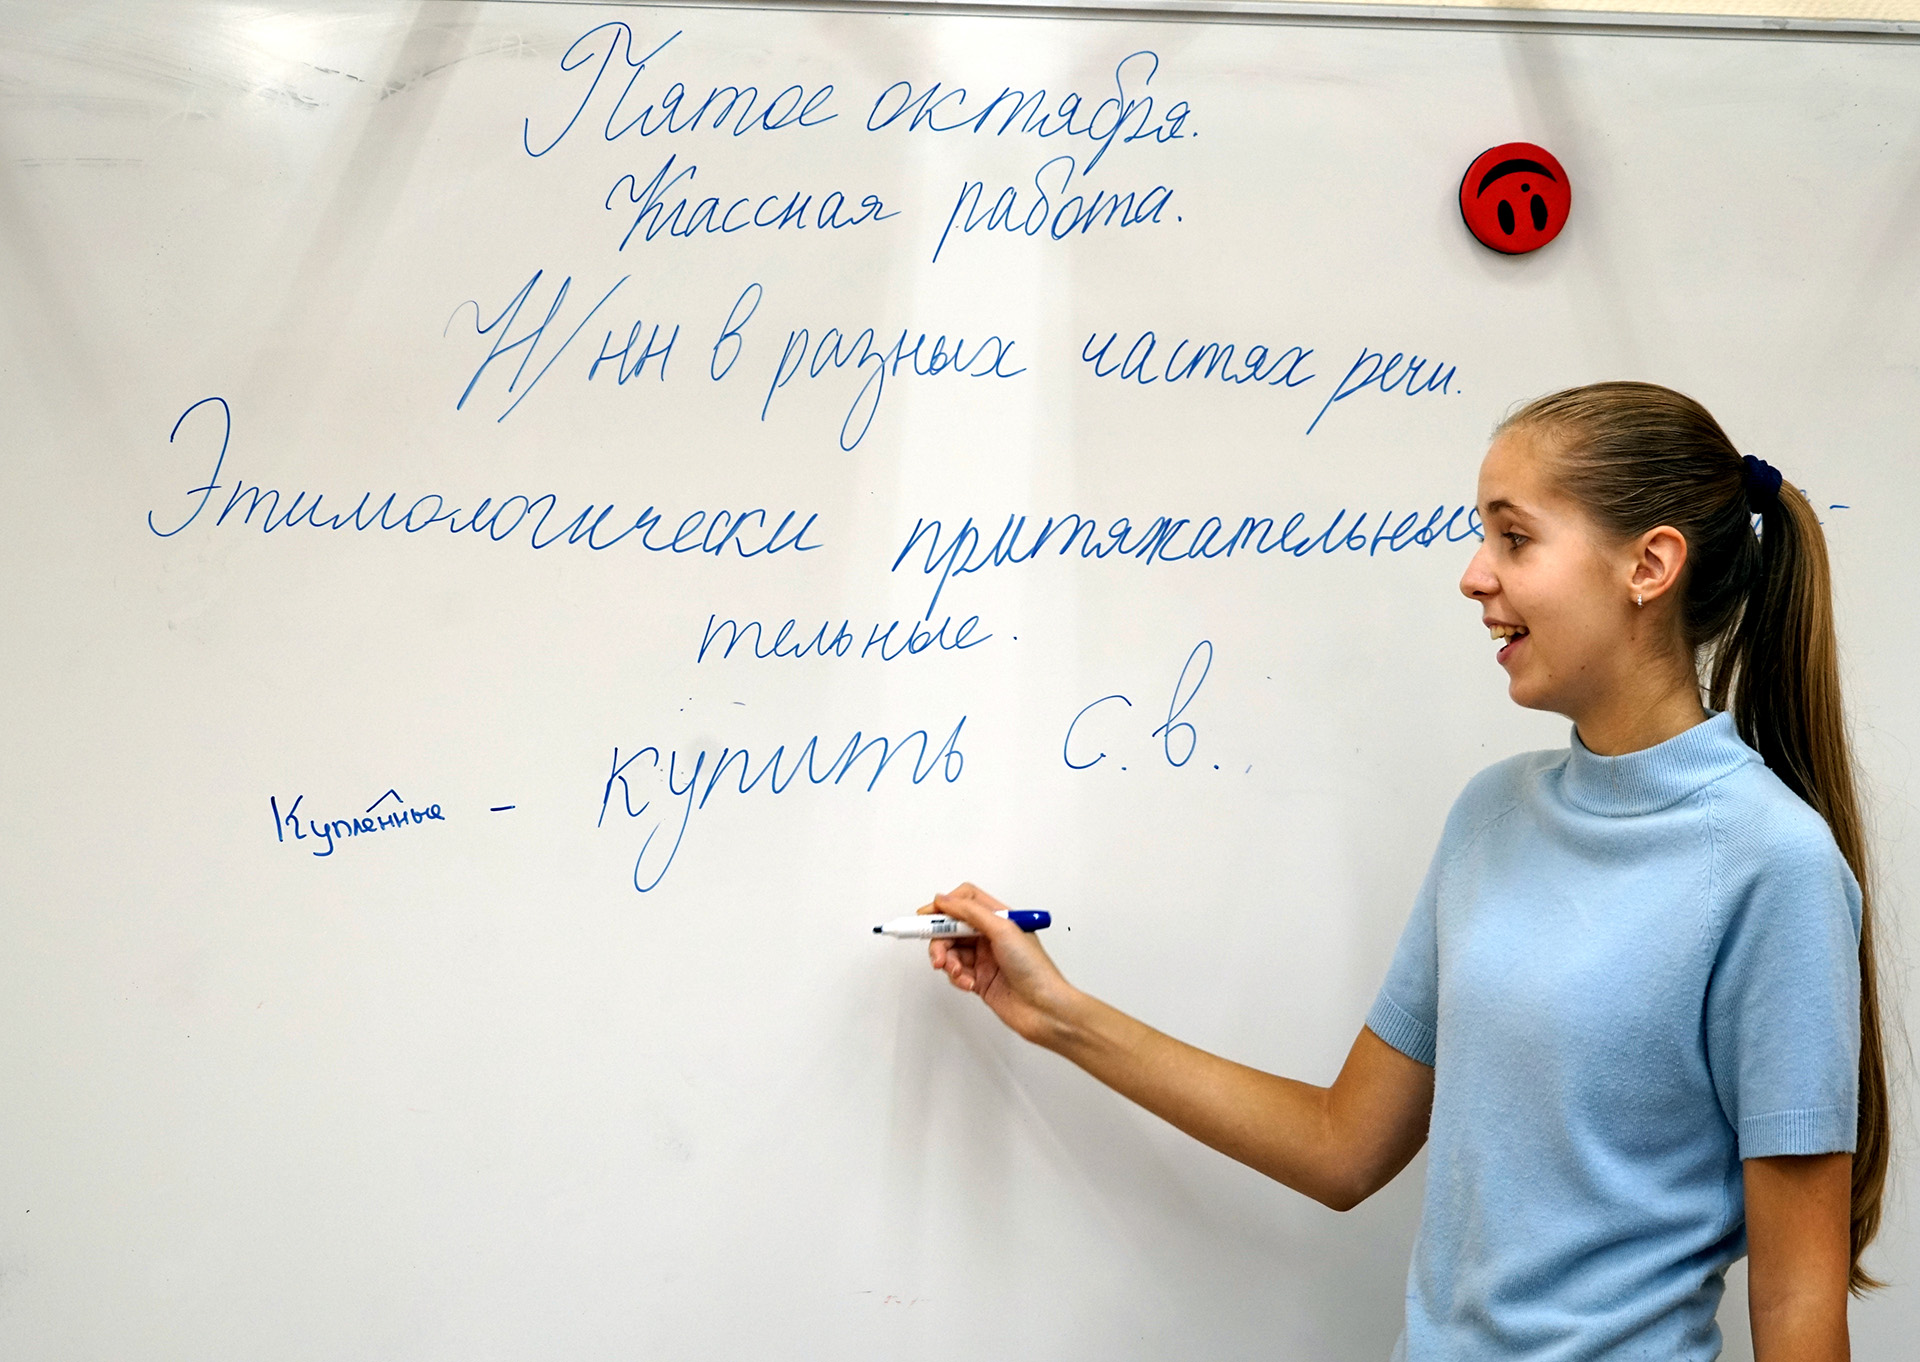 Пятое октября.
Классная работа.
Н/нн в разных частях речи.
Этимологически притяжательные
тельные.
купить с.в.
Купленные -